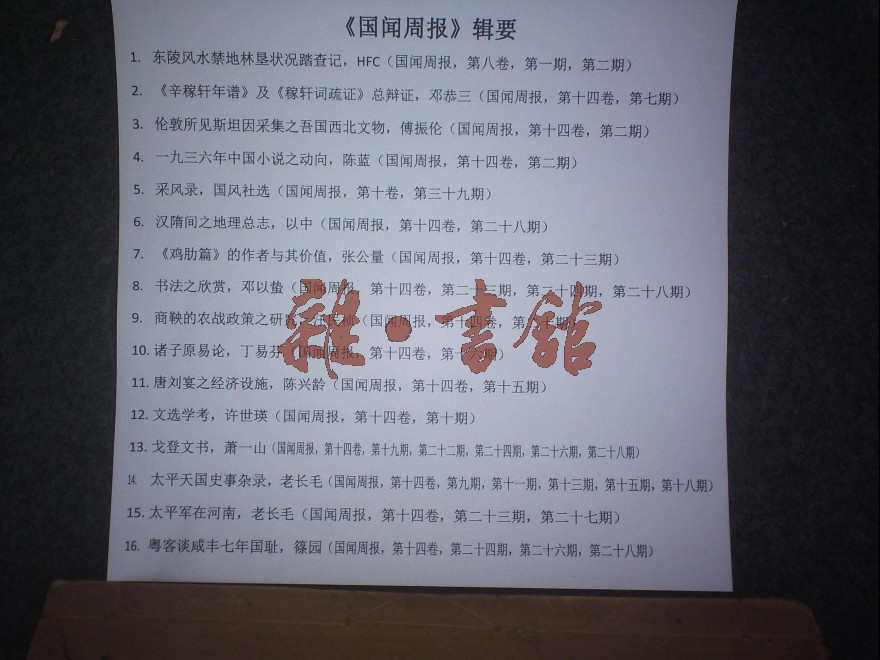 《国闻周报》辑要
1. 东陵风水禁地林垦状况踏查记，HFC（国闻周报，第八卷，第一期，第二期）
2. 《辛稼轩年谱》及《稼轩词疏证》总辩证，邓恭三（国闻周报，第十四卷，第七期）
3. 伦敦所见斯坦因采集之吾国西北文物，傅振伦（国闻周报，第十四卷，第二期）
4. 一九三六年中国小说之动向，陈蓝（国闻周报，第十四卷，第二期）
5. 采风录，国风社选（国闻周报，第十卷，第三十九期）
6. 汉隋间之地理总志，以中（国闻周报，第十四卷，第二十八期）
7. 《鸡肋篇》的作者与其价值，张公量（国闻周报，第十四卷，第二十三期）
8. 书法之欣赏，邓以蛰（国闻周报，第十四卷，第二十三期，第二十四期，第二十八期）
9. 商鞅的农战政策之研究，（国闻周报，第十四卷，第二十期）
10. 诸子原易论，丁易芬（国闻周报，第十四卷，第十六期）
11. 唐刘宴之经济设施，陈兴龄（国闻周报，第十四卷，第十五期）
12. 文选学考，许世瑛（国闻周报，第十四卷，第十期）
13. 戈登文书，萧一山（国闻周报，第十四卷，第十九期，第二十二期，第二十四期，第二十六期，第二十八期）
14. 太平天国史事杂录，老长毛（国闻周报，第十四卷，第九期，第十一期，第十三期，第十五期，第十八期）
15. 太平军在河南，老长毛（国闻周报，第十四卷，第二十三期，第二十七期）
16. 粤客谈咸丰七年国耻，篠园（国闻周报，第十四卷，第二十四期，第二十六期，第二十八期）
雜·書館